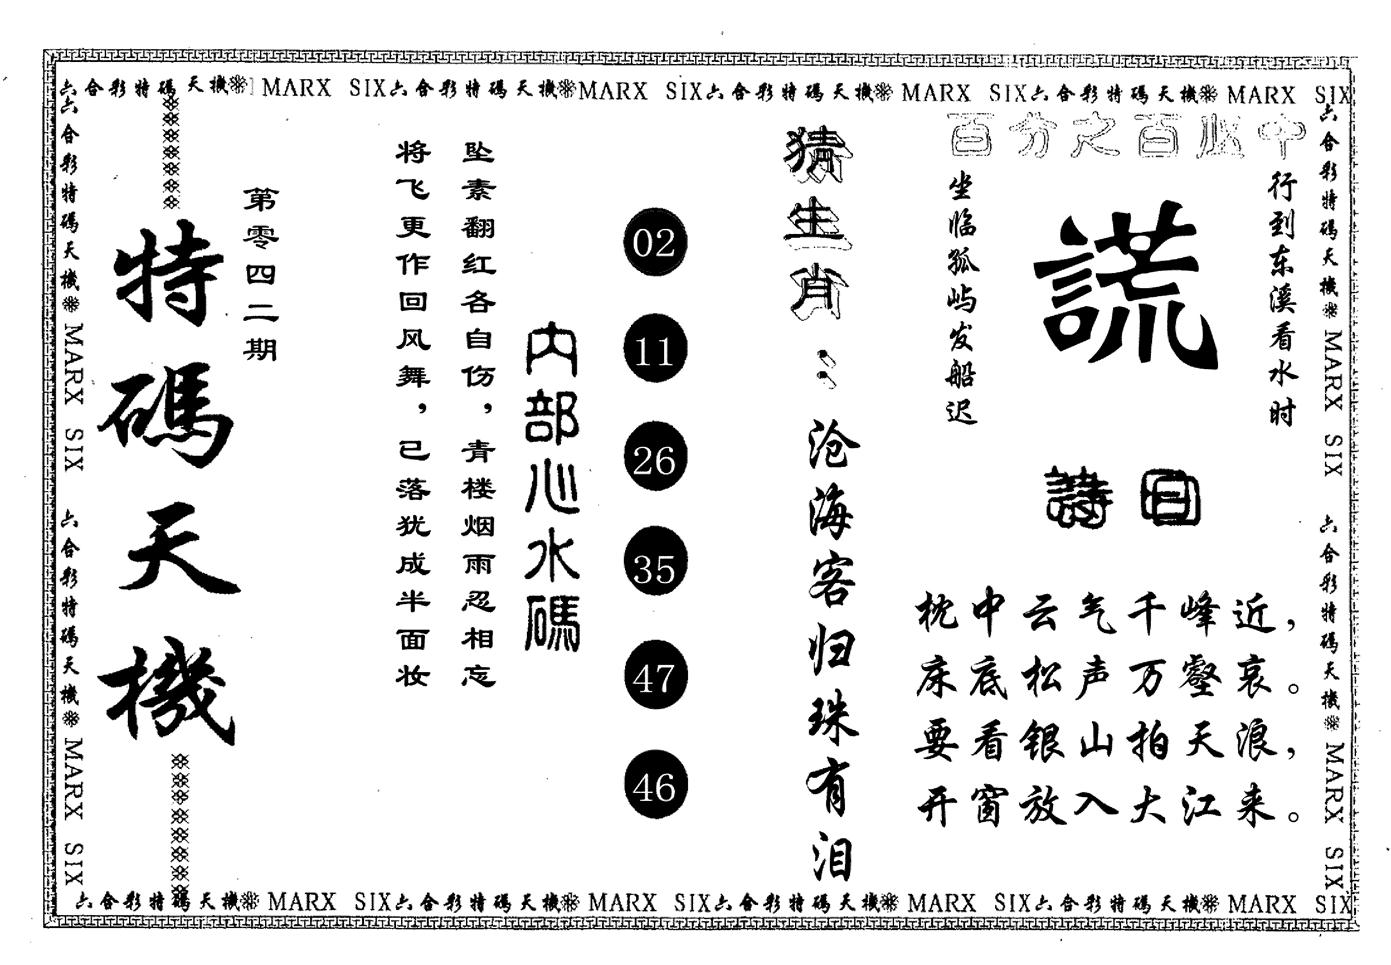 六合彩特碼天機 MARX SIX六合彩特碼天機MARX SIX六合彩特碼天機 MARX SIX六合彩特碼天機 MARX SIX
六合彩特碼天機 MARX SIX 六合彩特碼天機 MARX SIX
六合彩特碼天機 MARX SIX 六合彩特碼天機 MARX SIX
百分之百必中
行到东溪看水时
謊
坐临孤屿发船迟
詩曰
枕中云气千峰近，
床底松声万壑哀。
要看银山拍天浪，
开窗放入大江来。
猜生肖：沧海客归珠有泪
02
11
26
35
47
46
内部心水碼
坠素翻红各自伤，青楼烟雨忍相忘
将飞更作回风舞，已落犹成半面妆
第零四二期
特碼天機
六合彩特碼天機 MARX SIX六合彩特碼天機 MARX SIX六合彩特碼天機 MARX SIX六合彩特碼天機 MARX SIX